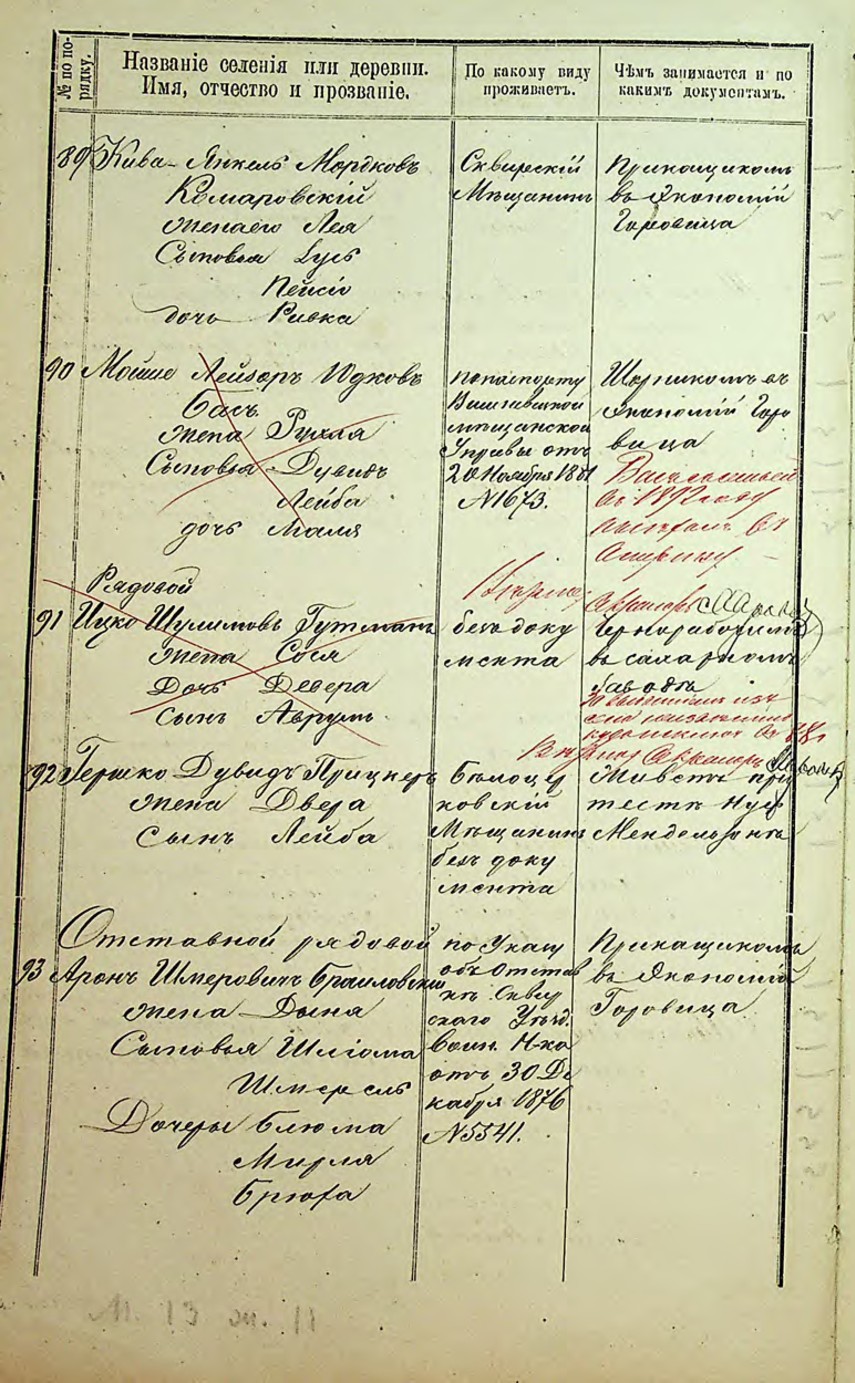 № по по-
рядку.
Названіе селенія или деревни.
Имя, отчество и прозваніе.
По какому виду
проживаетъ.
Чѣмъ занимается и по
какимъ документамъ.
89 Кива-Янкель Мордковъ
Комаровскій
жена его Лея
Сыновья Іусь
Пейсіо
дочь Ривка
Сквирскій
Мѣщанинъ
Прикащикомъ
въ Экономіи
Горовица
90 Мойше Лейзоръ Идковъ
Басъ
жена Рухля
Сыновья - Дувидъ
Лейба
дочь Маля
по паспорту
мѣщанской
Управы отъ
20 Ноября 1881
№1673.
Шорникомъ въ
Экономіи Горо
вица
въ 1892 году
въ
Америку
Рядовой
91 Ицко Шулимовъ Гутманъ
жена Сося
Дочь Девера
сынъ Аврумъ
безъ доку
мента
Чернорабочимъ
въ сахарномъ
заводѣ
92 Гершко Дувидъ Прицкеръ
жена Двера
Сынъ Лейба
Бѣлоцер
ковскій
Мѣщанинъ
безъ доку
мента
Живетъ при
тестѣ Нус
Мендельзонѣ
Отставной рядовой
93 Аронъ Шмеровичъ Браиловскій
жена Дыня
Сыновья Шліома
Шмерель
Дочеры Блюма
Мирля
Брюха
по Указу
объ Отстав
кѣ Сквир
скаго Уѣзд.
Воин. Н-ка
отъ 30 Де
кабря 1876
№5541.
Прикащикомъ
въ Экономіи
Горовица